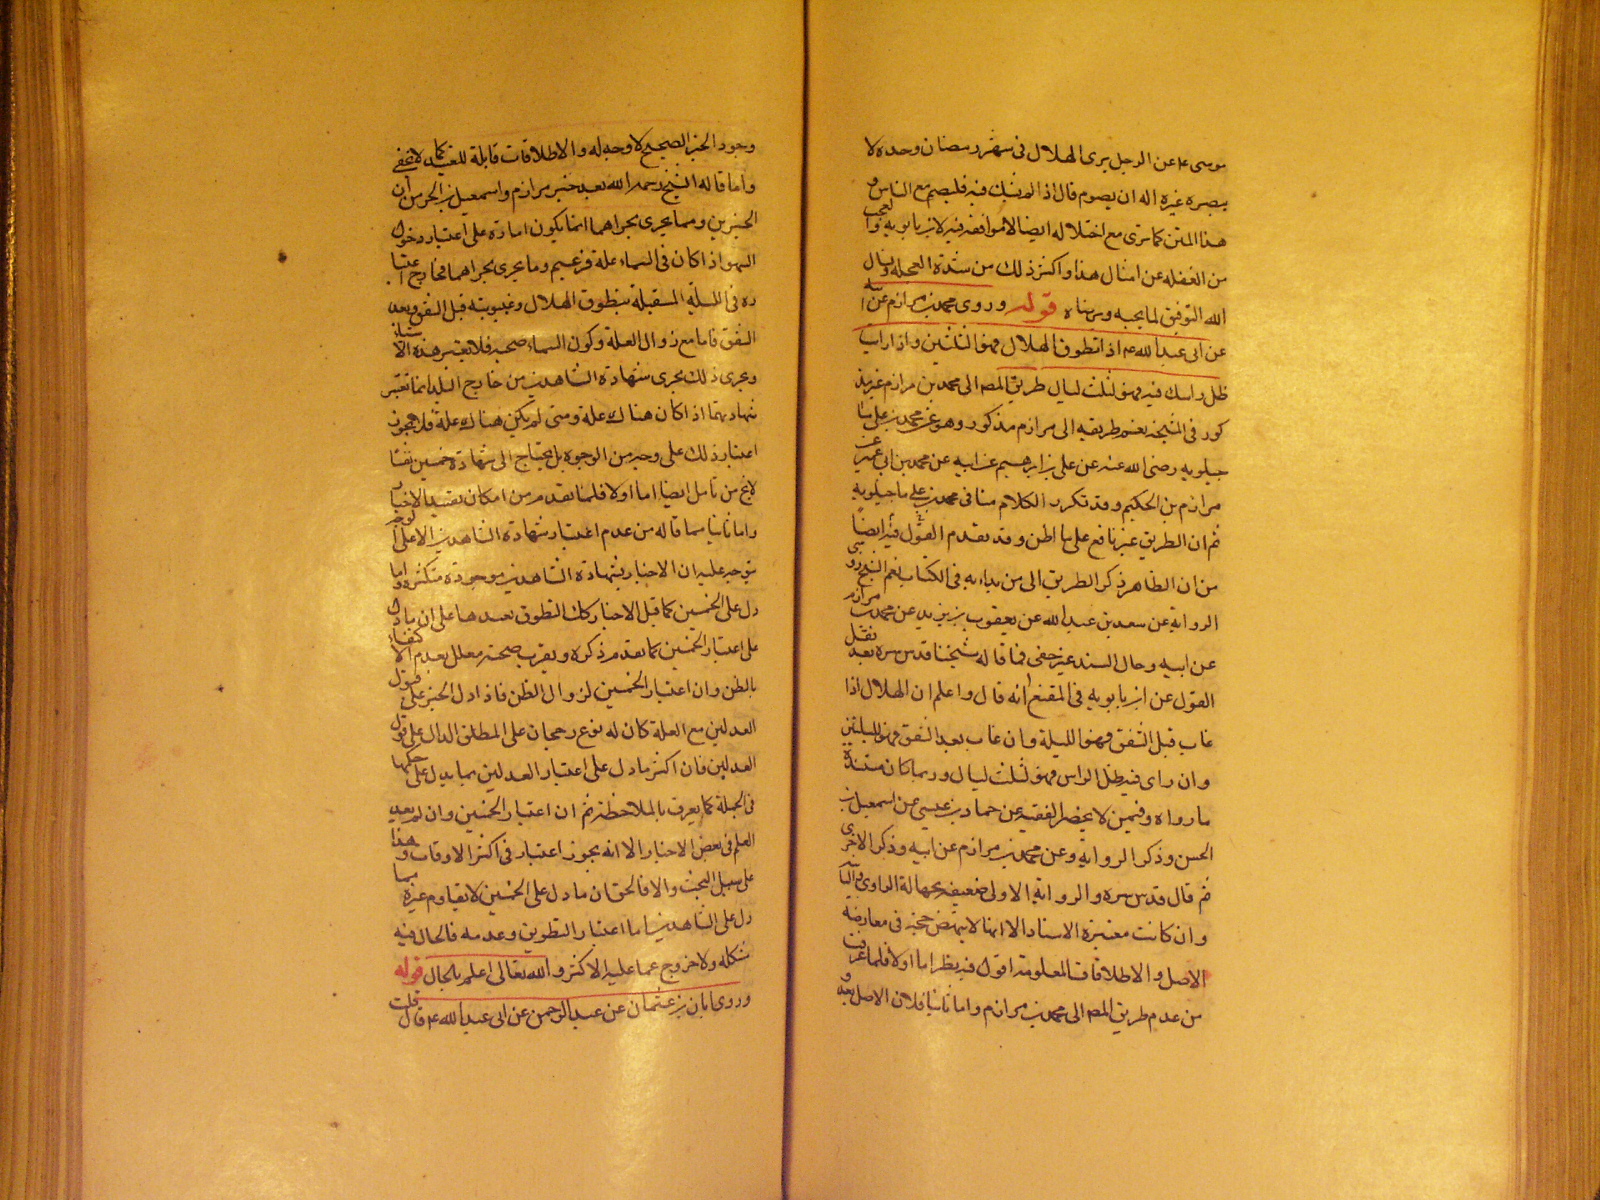 موسى ع عن الرجل يرى الهلال فى شهر رمضان وحده لا
يبصره غيره اله ان يصوم قال اذا لم يشك فيه فليصم مع الناس و
هذا المتن كما ترى مع اختلاله ايضا لا موافقة فيه لابن بابويه والعجب
من الغفله عن امثال هذا واكثر ذلك من شدة العجله ونسال
الله التوفيق لما يحبه ويرضاه قوله وروى محمد بن مرازم عن ابيه
عن ابى عبد الله ع اذا تطوق الهلال فهو لليلتين واذا رايت
ظل راسك فيه فهو لثلث ليال طريق المص الى محمد بن مرازم غير مذ
كور فى المشيخه نعم طريقه الى مرازم مذكور وهو عن محمد بن على ما
جيلويه رضى الله عنه عن على بن ابراهيم عن ابيه عن محمد بن ابى عمير عن
مرازم بن الحكيم وقد تكرر الكلام منا فى محمد بن على ماجيلويه
ثم ان الطريق غير نافع على ما اظن وقد تقدم القول فيه ايضا
من ان الظاهر ذكر الطريق الى من بداء به فى الكتاب نعم الشيخ روى
الرواية عن سعد بن عبد الله عن يعقوب بن يزيد عن محمد بن مرازم
عن ابيه وحال السند غير خفى فما قاله شيخنا قدس سره بعد نقل
القول عن ابن بابويه فى المقنع انه قال واعلم ان الهلال اذا
غاب قبل الشفق فهو لليلة وان غاب بعد الشفق فهو لليلتين
وان راى فيه ظل الراس فهو لثلث ليال وربما كان مستنده
ما رواه فيمن لا يحضر الفقيه عن حماد بن عيسى عن اسمعيل بن
الحسن وذكر الرواية وعن محمد بن مرازم عن ابيه وذكر الاخرى
ثم قال قدس سره والرواية الاولى ضعيفة بجهالة الراوى والثانية
وان كانت معتبرة الاسناد الا انها لا ينهض حجة فى معارضة
الاصل والاطلاقات المعلومة اقول فيه نظر اما اولا فلما عرفت
من عدم طريق المص الى محمد بن مرازم واما ثانيا فلان الاصل بعد و
وجود الخبر الصحيح لا وجه له والاطلاقات قابلة للتقييد كما لا يخفى
واما قاله الشيخ رحمه الله بعد خبر مرازم واسمعيل بن الحر من ان
الخبرين وما يجرى مجراهما انما يكون امارة على اعتبار دخول
الشهر اذا كان فى السماء علة من غيم وما يجرى مجراهما فجاز ح اعتبا
ره فى الليلة المستقبلة بتطوق الهلال وغيبوبته قبل الشفق وبعد
الشفق فاما مع زوال العلة وكون السماء مصحية فلا يعتبر هذه الاشياء
ويجرى ذلك مجرى شهادة الشاهدين من خارج البلد انما تعتبر
شهادتهما اذا كان هناك علة ومتى لم يكن هناك علة فلا يجوز
اعتبار ذلك على وجه من الوجوه بل يحتاج الى شهادة خمسين نفسا
لا يخ من تامل ايضا اما اولا فلما تقدم من امكان تقييد الاخبار
واما ثانيا فما قاله من عدم اعتبار شهادة الشاهدين الا على
يتوجه عليه ان الاخبار بشهادة الشاهدين موجودة متكثرة واما
دل على الخمسين كما قبل الاخبار كك التطوق بعدها على ان ما دل
على اعتبار الخمسين كما تقدم ذكره وبقرب صحته معلل بعدم الاكتفاء
بالظن وان اعتبار الخمسين لزوال الظن فاذا دل الخبر على قبول
العدلين مع العلة كان له نوع رجحان على المطلق الدال على قول
العدلين فان اكثر ما دل على اعتبار العدلين بما يدل على حكمها
فى الجملة كما يعرف بالملاحظة ثم ان اعتبار الخمسين وان لم يفد
العلم فى بعض الاخبار الا انه يجوز اعتبار فى اكثر الاوقات وهذا
على سبيل البحث والا فالحق ان ما دل على الخمسين لا يقاوم غيره مما
دل على الشاهدين اما اعتبار التطويق وعدمه فالحال فيه
شكله ولا خروج عما عليه الاكثر والله تعالى اعلم بالحال قوله
وروى ابان بن عثمان عن عبد الرحمن عن ابى عبد الله ع قال قلت